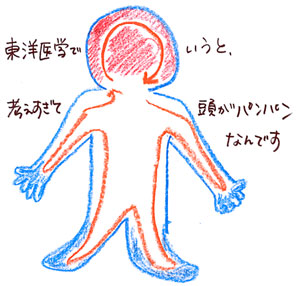 東洋医学でいうと、
考えすぎて頭がパンパン
なんです